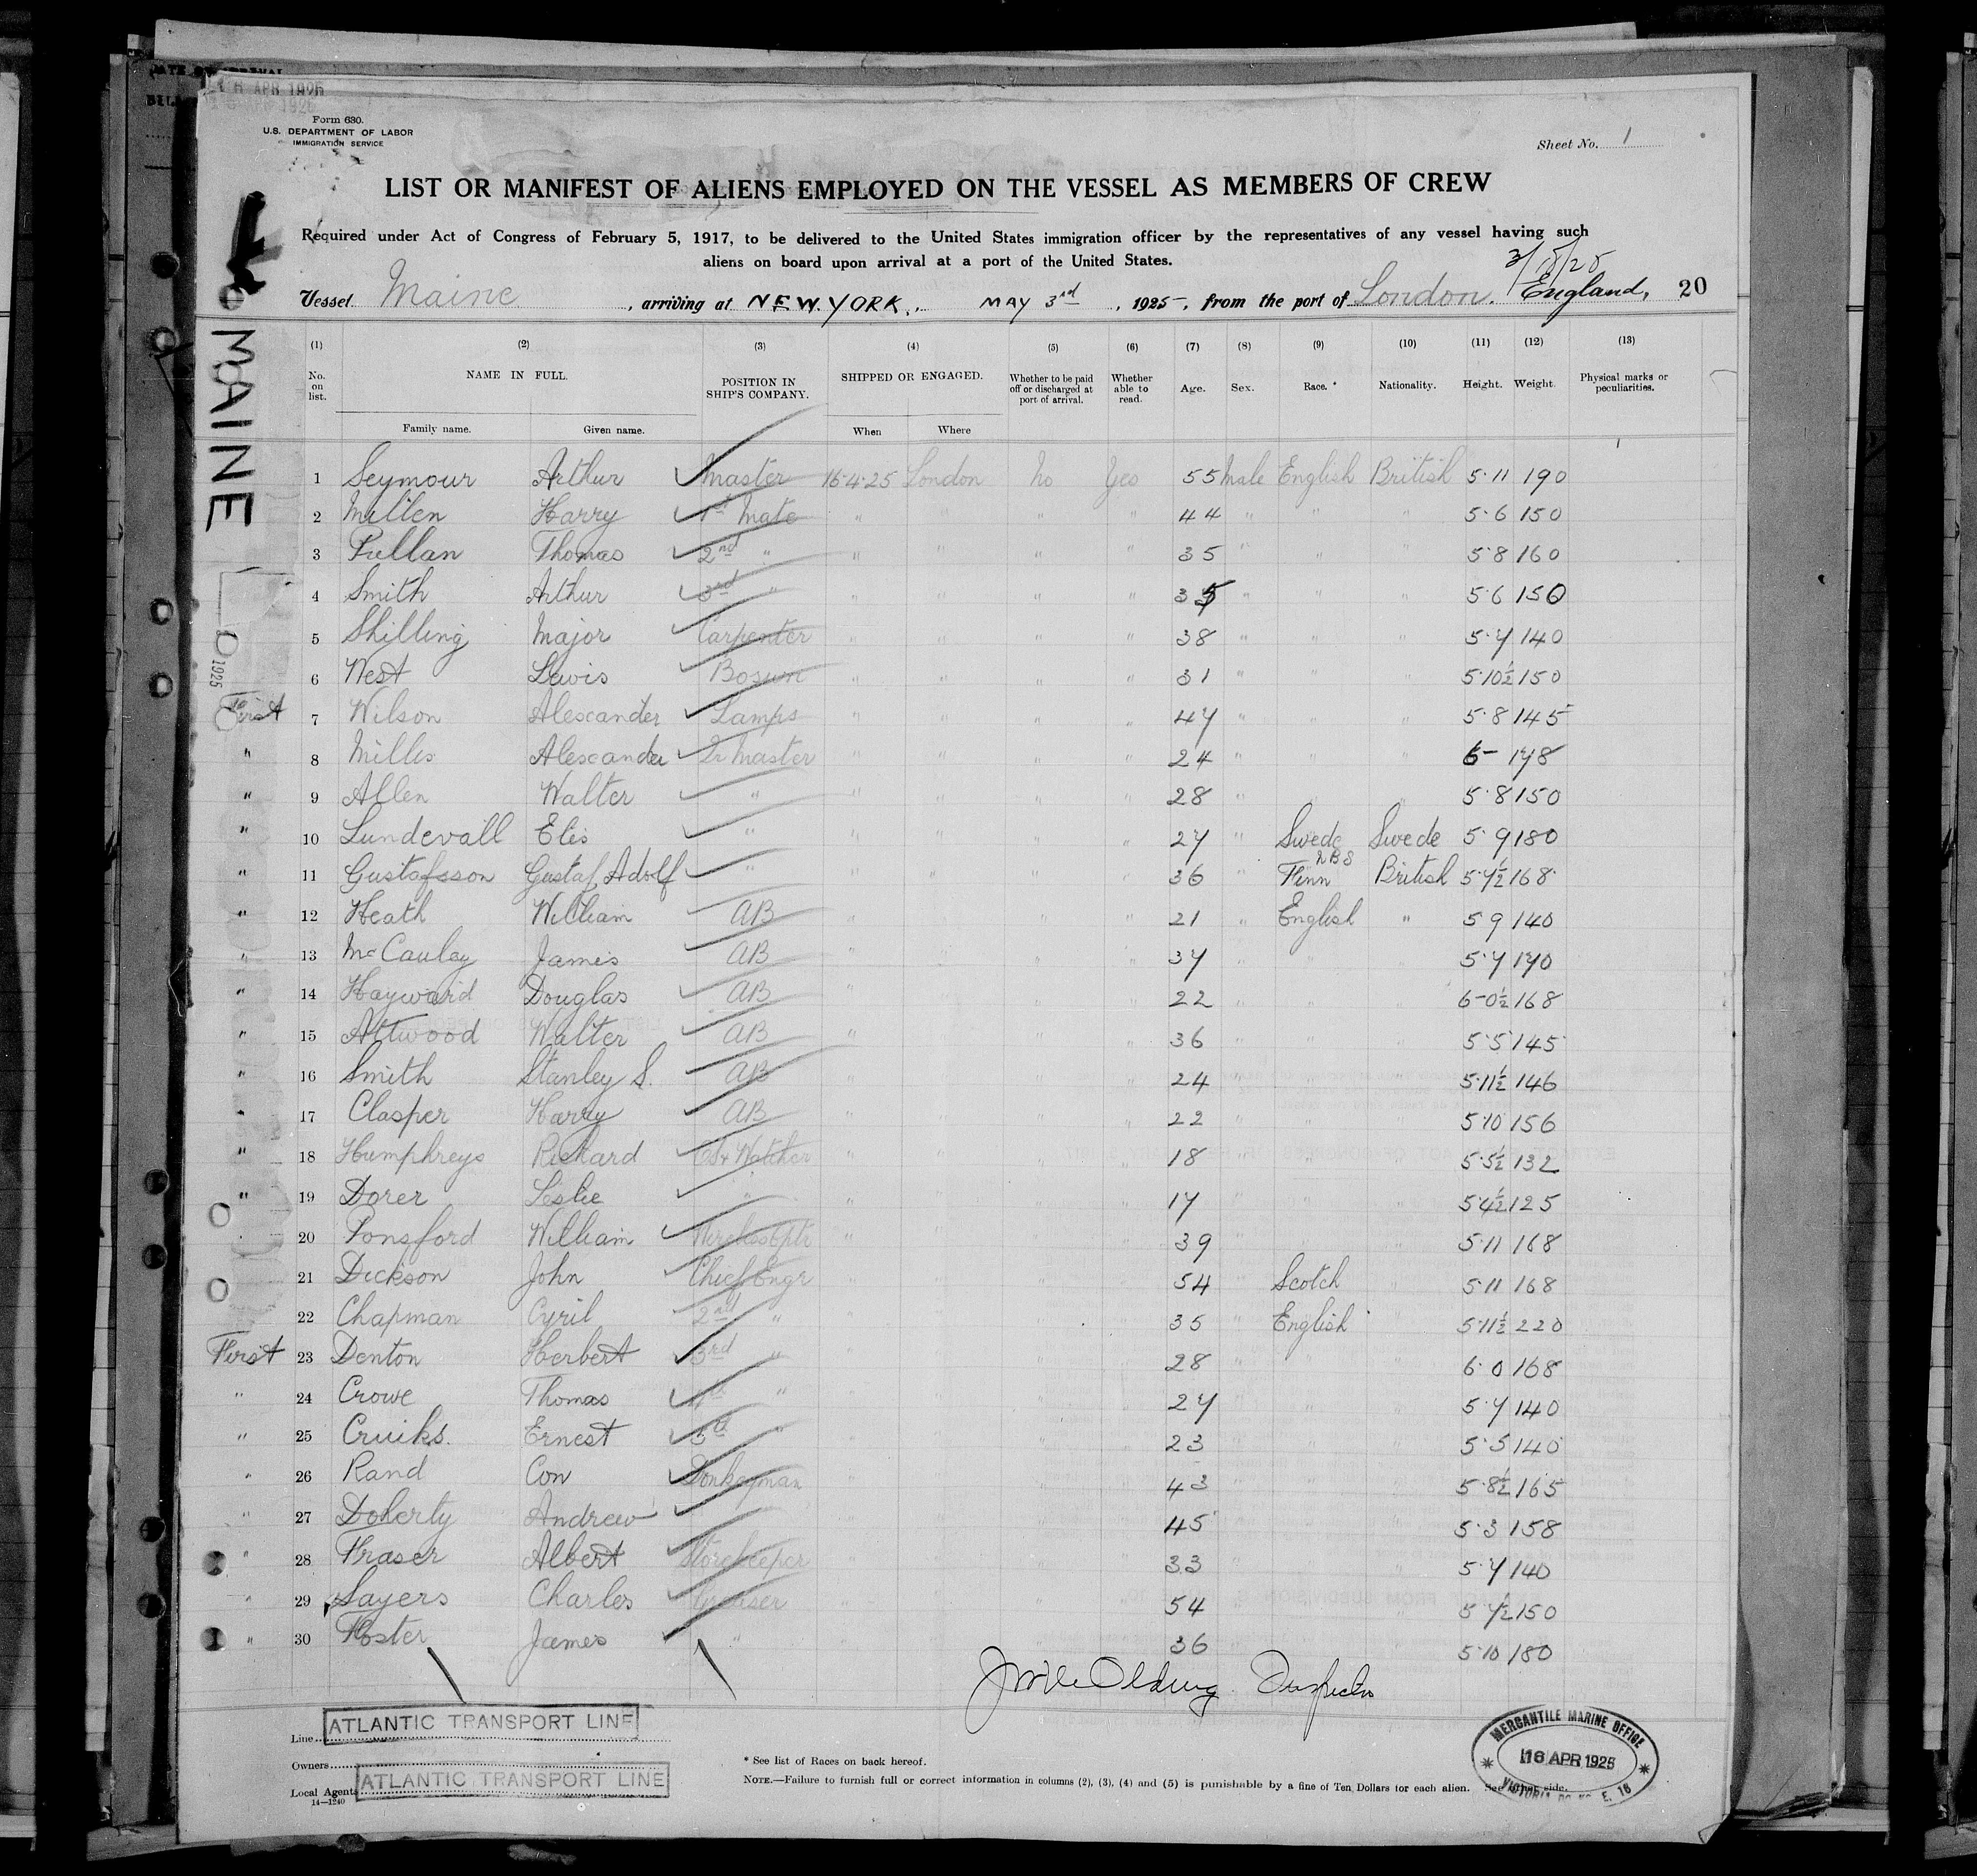 16 APR 1925
Form 630.
U.S. DEPARTMENT OF LABOR
IMMIGRATION SERVICE
Sheet No. 1
LIST OR MANIFEST OF ALIENS EMPLOYED ON THE VESSEL AS MEMBERS OF CREW
Required under Act of Congress of February 5, 1917, to be delivered to the United States immigration officer by the representatives of any vessel having such
aliens on board upon arrival at a port of the United States.
3/5/25
Vessel Maine, arriving at NEW YORK, MAY 3rd, 1925, from the port of London. England, 20
MAINE
(1) (2) (3) (4) (5) (6) (7) (8) (9) (10) (11) (12) (13)
No. on list. NAME IN FULL. POSITION IN SHIP'S COMPANY. SHIPPED OR ENGAGED. Whether to be paid off or discharged at port of arrival. Whether able to read. Age. Sex. Race.* Nationality. Height. Weight. Physical marks or peculiarities.
Family name. Given name. When Where
1 Seymour Arthur Master 16-4-25 London No Yes 55 Male English British 5-11 190
2 Millen Harry 1st Mate " " " " 44 " " " 5-6 150
3 Pullan Thomas 2nd " " " " " 35 " " " 5-8 160
4 Smith Arthur 3rd " " " " " 35 " " " 5-6 150
5 Shilling Major Carpenter " " " " 38 " " " 5-7 140
6 West Lewis Bosun " " " " 31 " " " 5-10½ 150
First 7 Wilson Alexander Lamps " " " " 47 " " " 5-8 145
" 8 Millis Alexander Qr Master " " " " 24 " " " 6- 178
" 9 Allen Walter " " " " " 28 " " " 5-8 150
" 10 Lundevall Elis " " " " " 27 " Swede Swede 5-9 180
" 11 Gustafsson Gustaf Adolf " " " " " 36 " Finn British 5-7½ 168
" 12 Heath William AB " " " " 21 " English " 5 9 140
" 13 McCauley James AB " " " " 37 " " " 5-7 170
" 14 Hayward Douglas AB " " " " 22 " " " 6-0½ 168
" 15 Attwood Walter AB " " " " 36 " " " 5-5 145
" 16 Smith Stanley S. AB " " " " 24 " " " 5-11½ 146
" 17 Clasper Harry AB " " " " 22 " " " 5-10 156
" 18 Humphreys Richard Watcher " " " " 18 " " " 5-5½ 132
" 19 Dorer Leslie " " " " " 17 " " " 5-4½ 125
20 Ponsford William Wireless Optr " " " " 39 " " " 5-11 168
21 Dickson John Chief Engr " " " " 54 " Scotch " 5-11 168
22 Chapman Cyril 2nd " " " " " 35 " English " 5-11½ 220
First 23 Denton Herbert 3rd " " " " " 28 " " " 6-0 168
" 24 Crowe Thomas 4th " " " " " 27 " " " 5-7 140
" 25 Cruiks. Ernest 5th " " " " " 23 " " " 5-5 140
" 26 Rand Con Donkeyman " " " " 43 " " " 5-8½ 165
" 27 Doherty Andrew " " " " " 45 " " " 5-3 158
" 28 Fraser Albert Storekeeper " " " " 33 " " " 5-7 140
" 29 Sayers Charles Greaser " " " " 54 " " " 5 7½ 150
" 30 Foster James " " " " " 36 " " " 5-10 180
Inspector
Line ATLANTIC TRANSPORT LINE
Owners
Local Agents ATLANTIC TRANSPORT LINE
14—1240
* See list of Races on back hereof.
NOTE.—Failure to furnish full or correct information in columns (2), (3), (4) and (5) is punishable by a fine of Ten Dollars for each alien. See other side.
MERCANTILE MARINE OFFICE
16 APR 1925
VICTORIA DOCKS E. 16